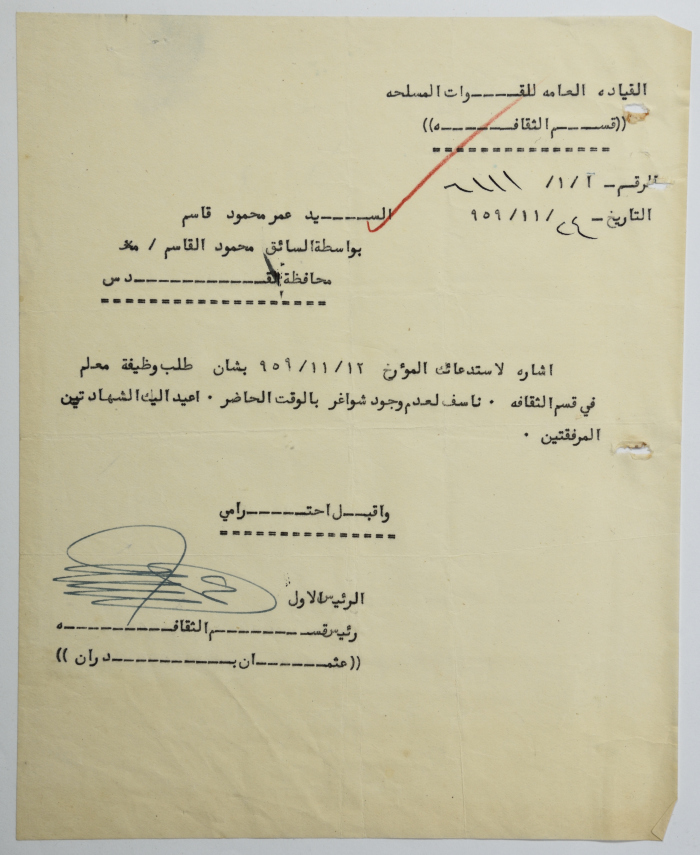 القياده العامه للقـــــوات المسلحه
((قســـم الثقافـــــــه))
الرقم - آ /١/ ٦١١١
التاريخ - ٢٤/ ٩٥٩/١١
الســـــيد عمر محمود قاسم
بواسطة السائق محمود القاسم /
محافظة القـــــــــــدس
اشاره لاستدعائك المؤرخ ٩٥٩/١١/١٢ بشان طلب وظيفة معلم
في قسم الثقافه ٠ ناسف لعدم وجود شواغر بالوقت الحاضر ٠ اعيد اليك الشهادتين
المرفقتين ٠
واقبـــل احتـــــرامي
الرئيس الاول
رئيس قســـــــم الثقافـــــــــــه
((عثمـــــــان بـــــــــــدران))